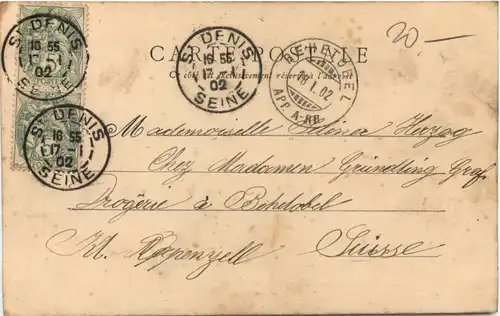 20.—
CARTE POSTALE
Ce côté est exclusivement réservé à l'adresse
ST DENIS
16 55
17 - 1
02
SEINE
ST DENIS
16 55
17 - 1
02
SEINE
ST DENIS
16 55
17 - 1
02
SEINE
18. I. 02
APP. A-RH
Mademoiselle Herzog
Chez Madamen Gründling Graf
Drogérie à Behetobel
Kt. Appenzell Suisse